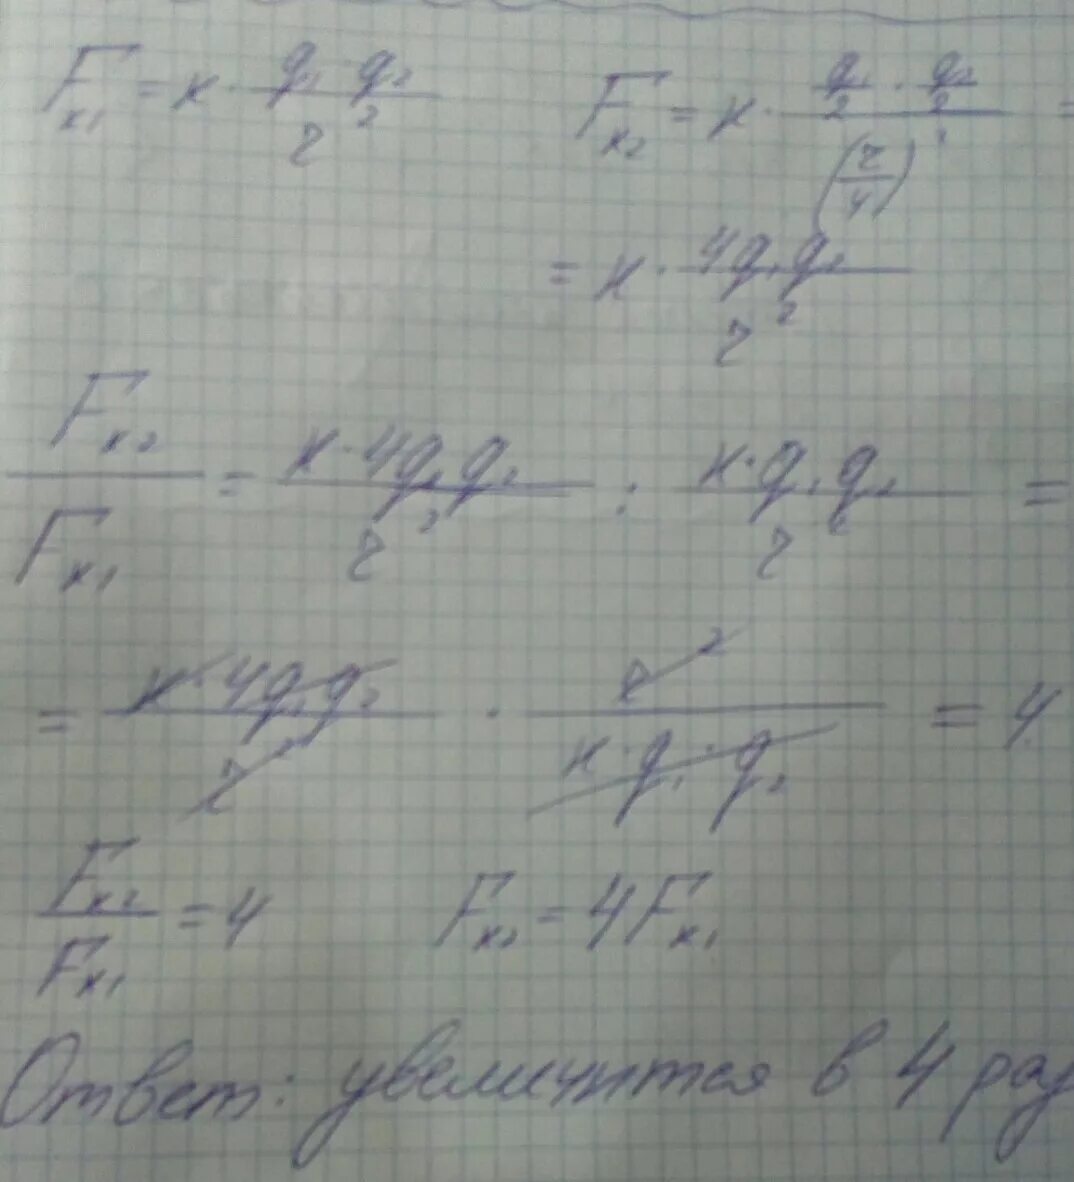 Fк1 = к · q1 · q2 / r²    Fк2 = к · (q1/2 · q2/2) / (r/4)² =
= к · 4q1q2 / r²
Fк2 / Fк1 = к · 4q1q2 / r² : к · q1q2 / r² =
= к · 4q1q2 / r² · r² / к · q1 · q2 = 4
Fк2 / Fк1 = 4    Fк2 = 4Fк1
Ответ: увеличится в 4 раз